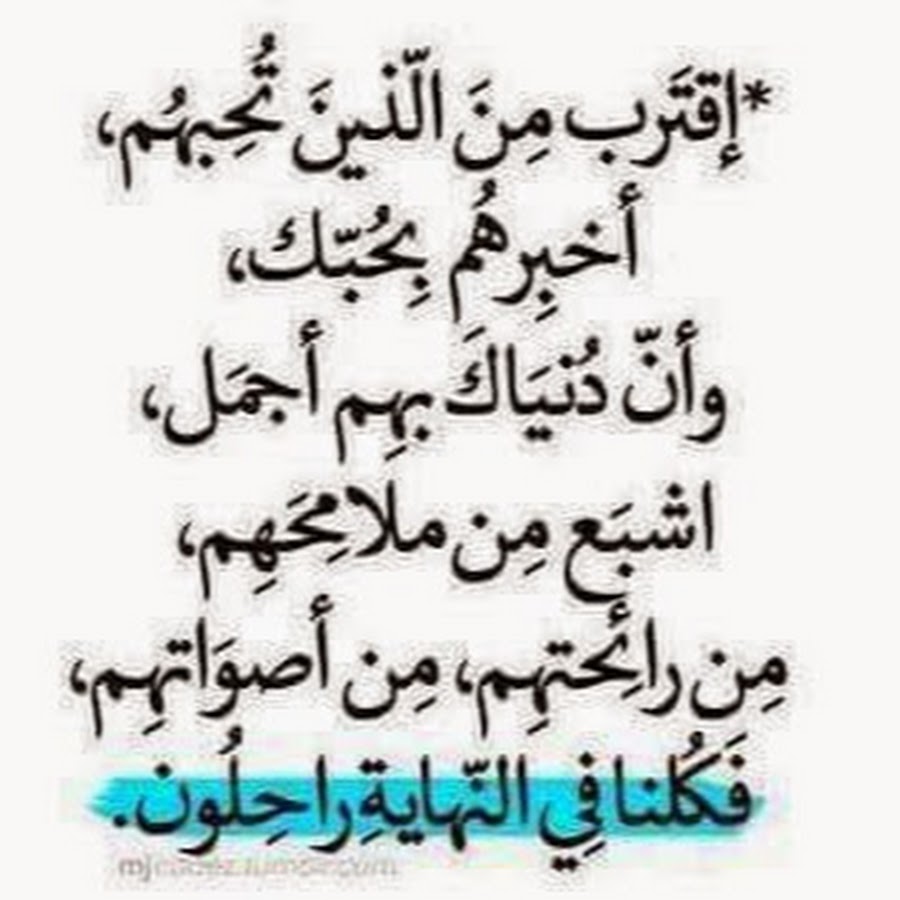 *إقتَرب مِنَ الّذينَ تُحِبهُم،
أخبِرهُم بِحُبّك،
وأنّ دُنيَاكَ بهِم أجمَل،
اشبَع مِن ملامِحَهِم،
مِن رائِحتهِم، مِن أصوَاتهِم،
فَكُلنا فِي النّهايةِ راحِلُون.